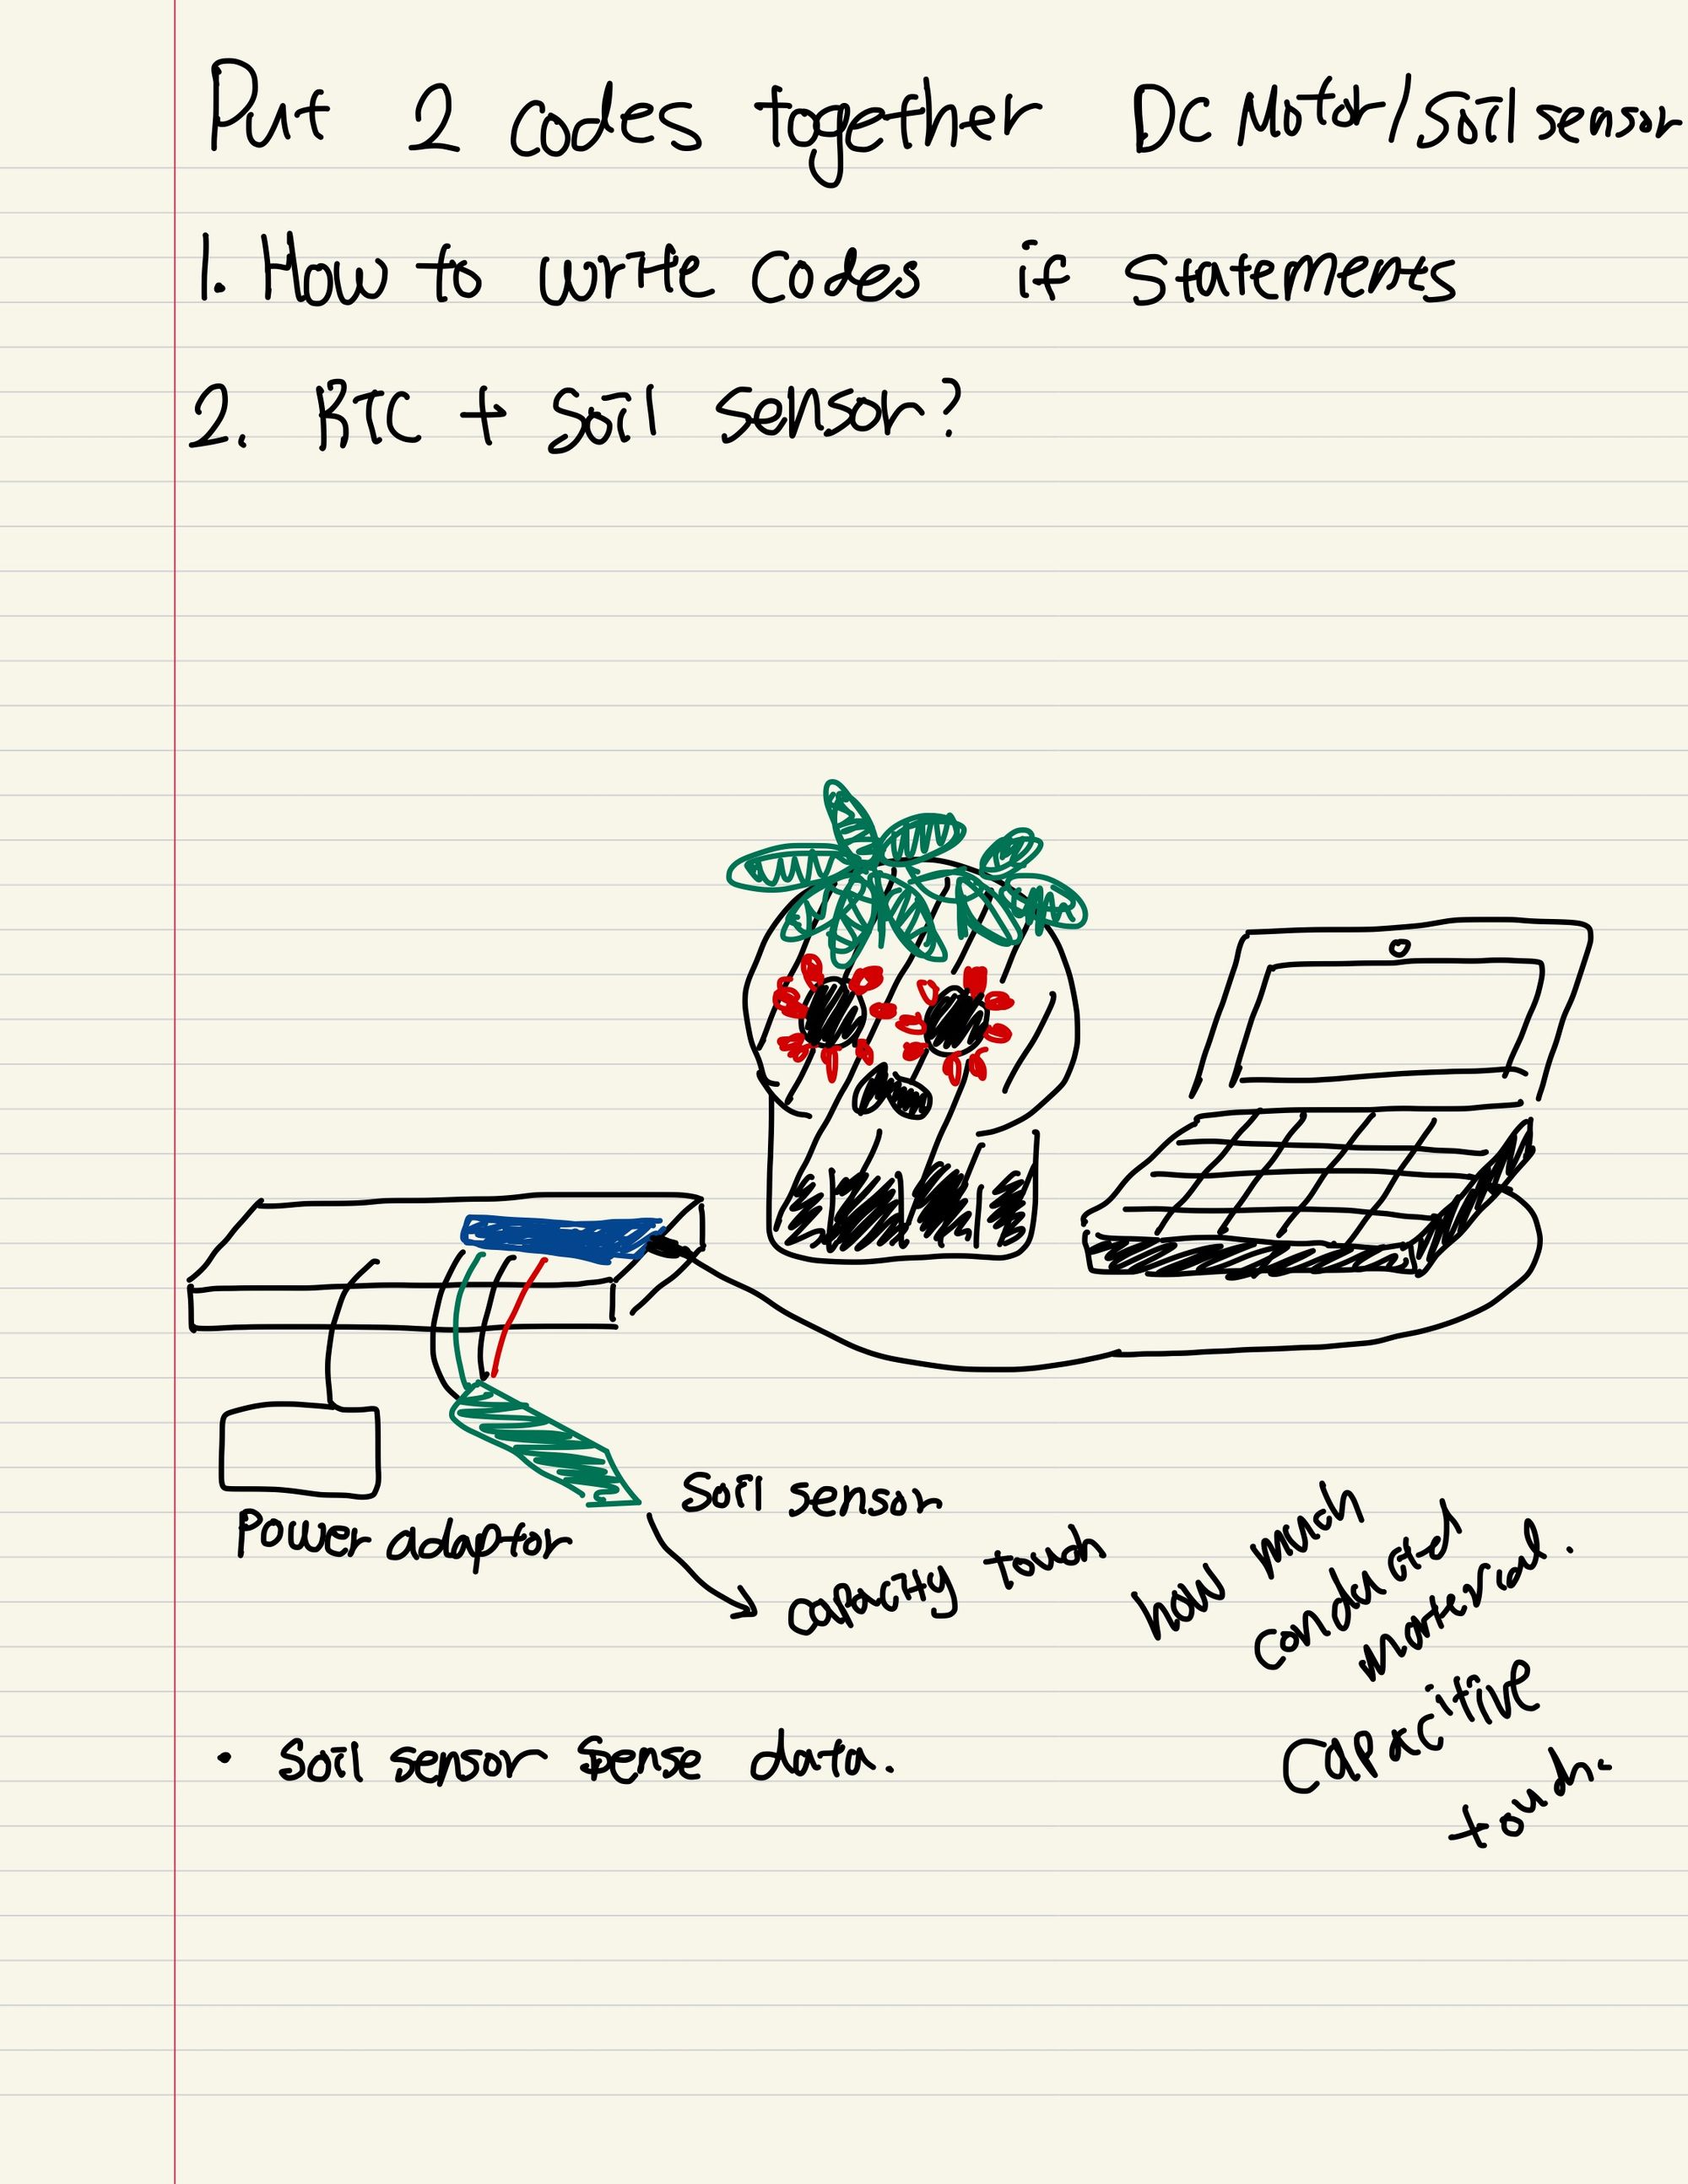 Put 2 codes together DC Motor/soil sensor
1. How to write codes if statements
2. RTC + soil sensor?
soil sensor
Power adaptor
capacity touch
how much
conducted
material.
capacitive
touch.
· soil sensor sense data.